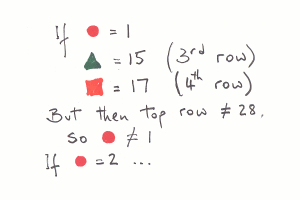 If ● = 1
▲ = 15 (3rd row)
■ = 17 (4th row)
But then top row ≠ 28,
so ● ≠ 1
If ● = 2 ...